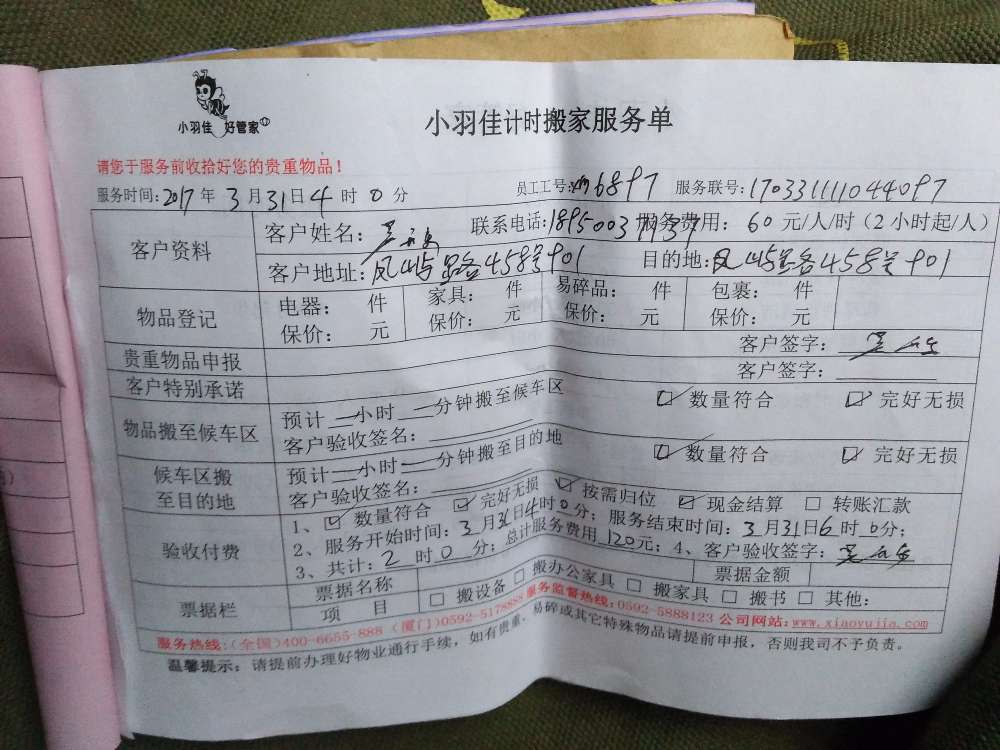 小羽佳 好管家
小羽佳计时搬家服务单
请您于服务前收拾好您的贵重物品！
服务时间：2017 年 3 月 31 日 4 时 0 分 员工工号： 6897 服务联号：1703311111044097
客户资料 客户姓名： 联系电话： 服务费用： 60 元/人/时（2 小时起/人）
客户地址：凤屿路458号401 目的地：凤屿路458号401
物品登记 电器： 件 家具： 件 易碎品： 件 包裹： 件
保价： 元 保价： 元 保价： 元 保价： 元
贵重物品申报 客户签字：
客户特别承诺 客户签字：
物品搬至候车区 预计 一 小时 一 分钟搬至候车区 ☑ 数量符合 ☑ 完好无损
客户验收签名：
候车区搬至目的地 预计 一 小时 一 分钟搬至目的地 ☑ 数量符合 ☑ 完好无损
客户验收签名：
验收付费 1、☑ 数量符合 ☑ 完好无损 ☑ 按需归位 ☑ 现金结算 □ 转账汇款
2、服务开始时间：3 月 31 日 4 时 0 分；服务结束时间：3 月 31 日 6 时 0 分；
3、共计：2 时 0 分；总计服务费用 120 元；4、客户验收签字：
票据栏 票据名称 票据金额
项 目 □ 搬设备 □ 搬办公家具 □ 搬家具 □ 搬书 □ 其他：
服务热线：（全国）400-6655-888（厦门）0592-5178888 服务监督热线：0592-5888123 公司网站：www.xiaoyujia.com
温馨提示：请提前办理好物业通行手续，如有贵重、易碎或其它特殊物品请提前申报，否则我司不予负责。